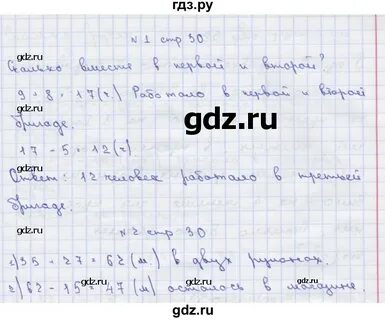 гдз.ру
№1 стр 30
Сколько вместе в первой и второй?
9+8=17(ч) Работало в первой и второй
бригаде.
17-5=12(ч)
Ответ: 12 человек работало в третьей
бригаде.
№2 стр 30
1) 35+27=62(м) в двух рулонах.
2) 62-15=47(м) осталось в магазине.
gdz.ru
gdz.ru
gdz.ru
gdz.ru
gdz.ru
gdz.ru
gdz.ru
gdz.ru